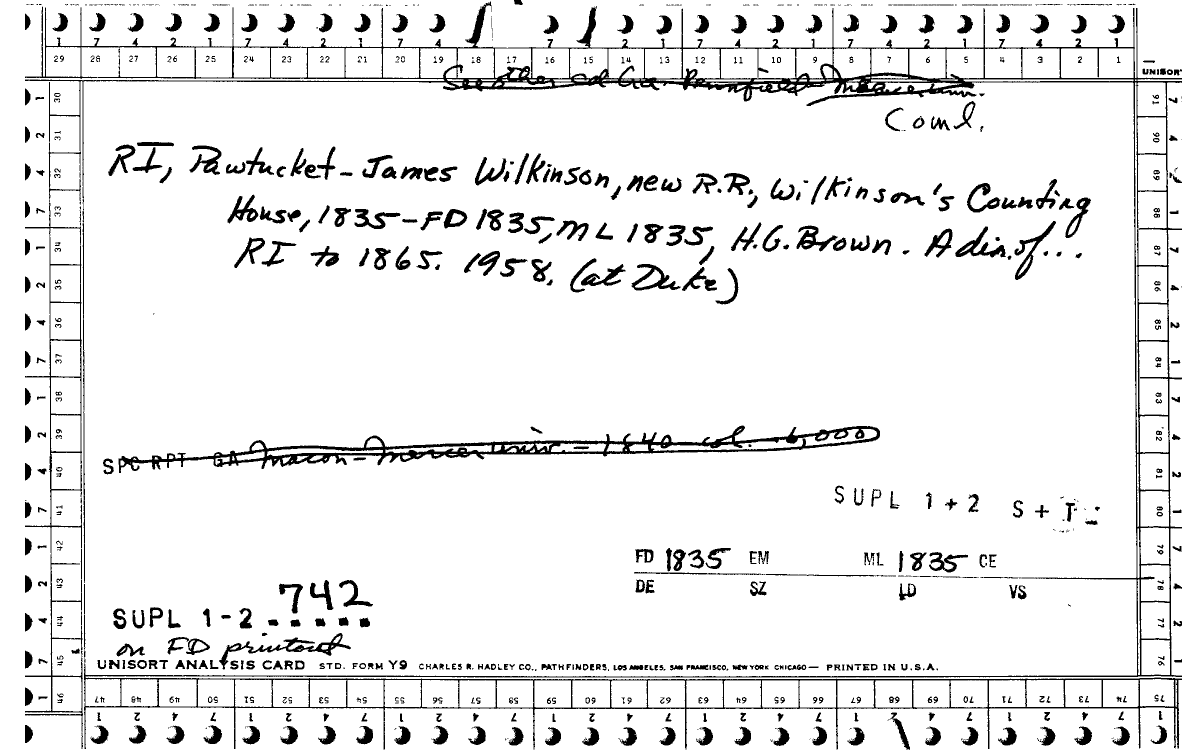 7 4 2 1 7 4 2 1 7 4 2 1 7 4 2 1 7 4 2 1 7 4 2 1
29 28 27 26 25 24 23 22 21 20 19 18 17 16 15 14 13 12 11 10 9 8 7 6 5 4 3 2 1
UNISORT
See other cd Ga. Pennfield Mercer Univ.
Coml.
RI, Pawtucket - James Wilkinson, new R.R., Wilkinson's Counting
House, 1835 - FD 1835, ML 1835, H.G. Brown. A din. of...
RI to 1865. 1958. (at Duke)
SPC RPT GA Macon - Mercer Univ. - 1840 col. 6,000
SUPL 1+2 S+T
FD 1835 EM ML 1835 CE
DE SZ LD VS
742
SUPL 1-2
on FD printout
UNISORT ANALYSIS CARD STD. FORM Y9 CHARLES R. HADLEY CO., PATHFINDERS, LOS ANGELES, SAN FRANCISCO, NEW YORK CHICAGO — PRINTED IN U.S.A.
30 31 32 33 34 35 36 37 38 39 40 41 42 43 44 45 46
91 90 89 88 87 86 85 84 83 82 81 80 79 78 77 76 75
47 48 49 50 51 52 53 54 55 56 57 58 59 60 61 62 63 64 65 66 67 68 69 70 71 72 73 74